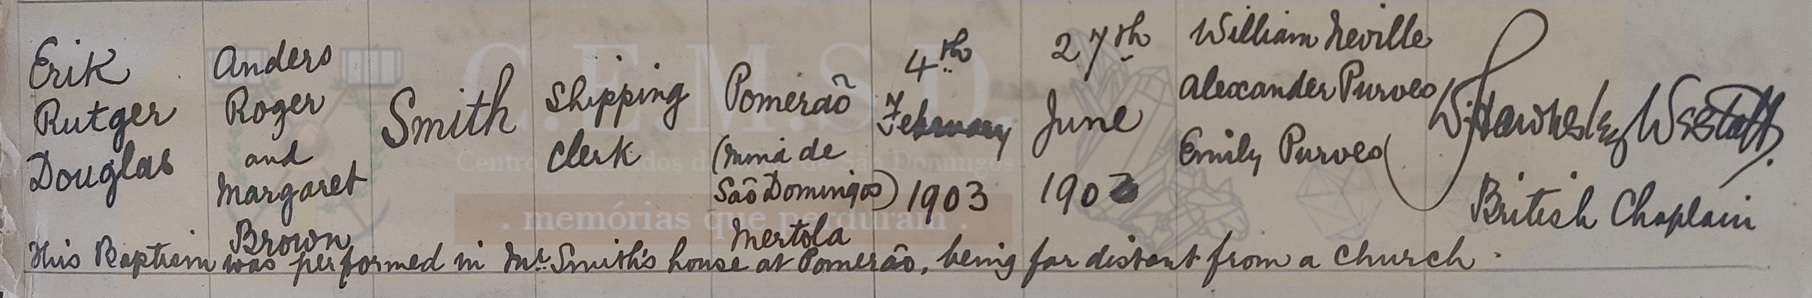 Erik
Rutger
Douglas
Anders
Roger
and
Margaret
Brown
Smith
Shipping
Clerk
Pomerão
(Mina de
São Domingos)
Mertola
4th
February
1903
27th
June
1903
William Neville
Alexander Purves
Emily Purves
British Chaplain
This Baptism was performed in Mr. Smith's house at Pomerão, being far distant from a church.
C.E.M.S.D
. memórias que perduram .